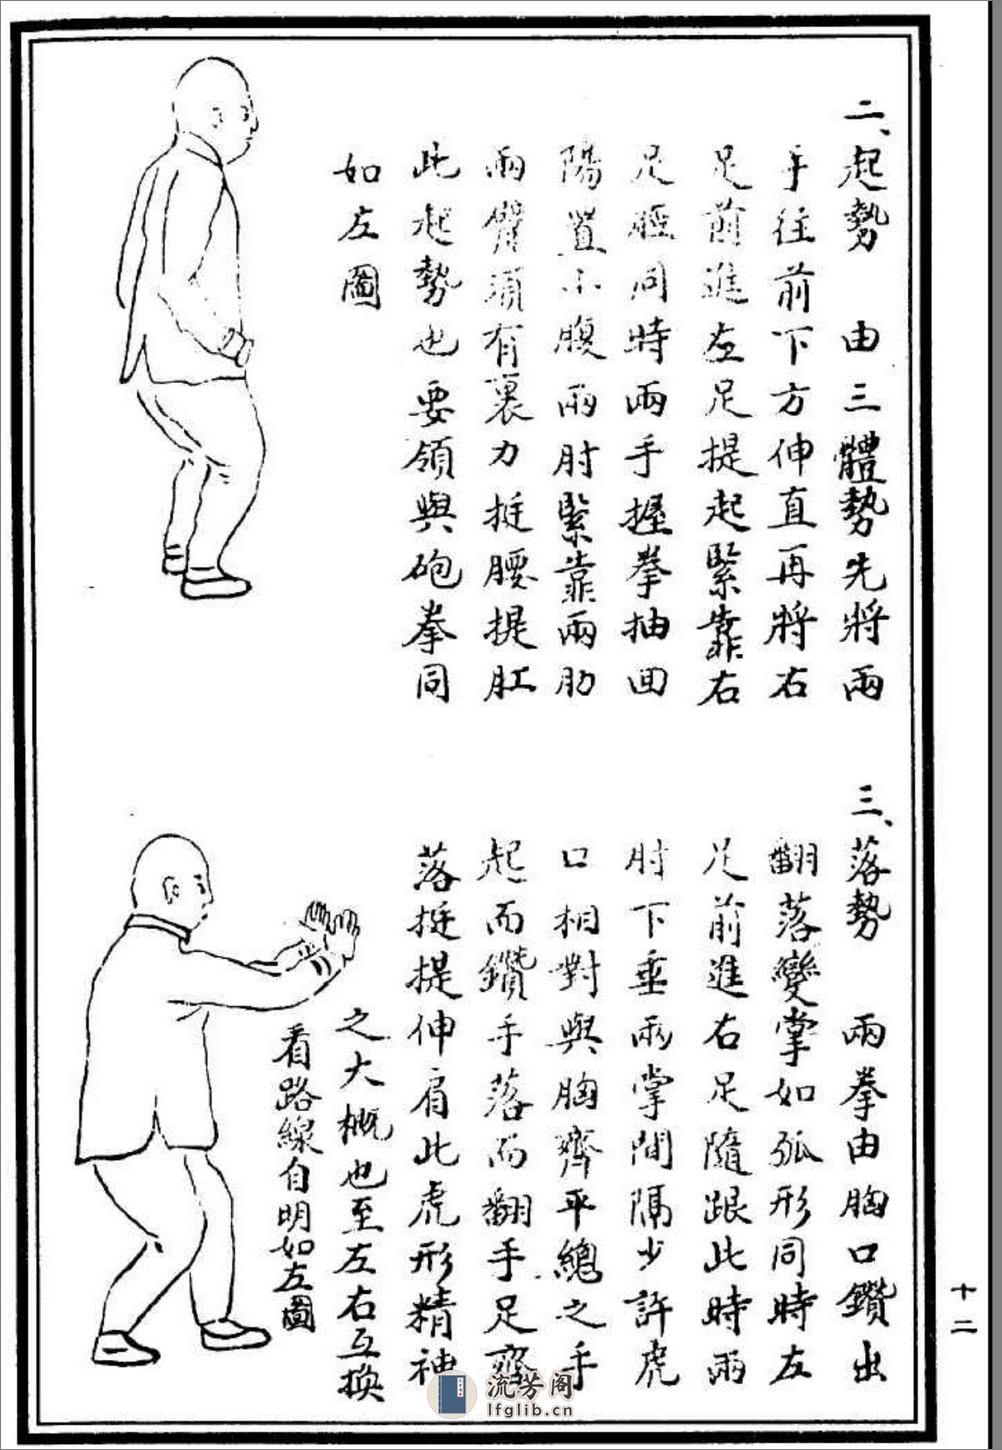 二、起勢　由三體勢先將兩
手往前下方伸直再將右
足前進左足提起緊靠右
足脛同時兩手握拳抽回
陽置小腹兩肘緊靠兩肋
兩臂須有裹力挺腰提肛
此起勢也要領與砲拳同
如左圖
三、落勢　兩拳由胸口鑽出
翻落變掌如弧形同時左
足前進右足隨跟此時兩
肘下垂兩掌間隔少許虎
口相對與胸齊平總之手
起而鑽手落而翻手足齊
落挺提伸肩此虎形精神
之大概也至左右互換
看路線自明如左圖
十二
流芳阁
lfglib.cn